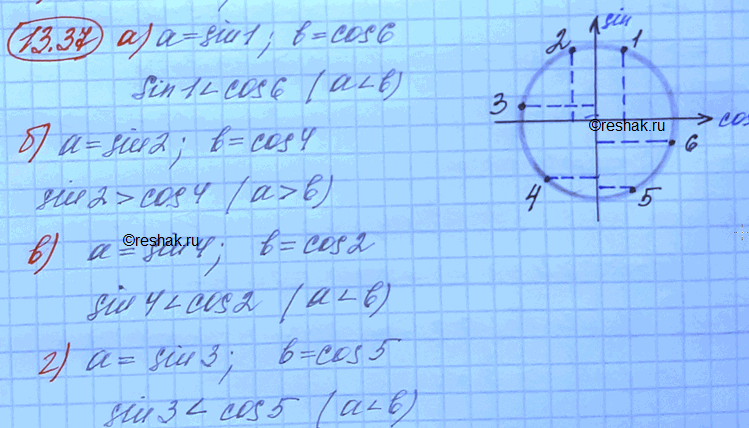 13.37 а) a = sin1; b = cos6
sin1 < cos6 (a < b)
б) a = sin2; b = cos4
sin2 > cos4 (a > b)
в) a = sin4; b = cos2
©reshak.ru
sin4 < cos2 (a < b)
г) a = sin3; b = cos5
sin3 < cos5 (a < b)
sin
2 1
3
cos
©reshak.ru
6
4 5